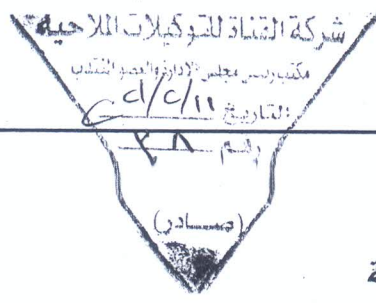 شركة القناة للتوكيلات الملاحية
مكتب رئيس مجلس الادارة والعضو المنتدب
التاريخ
رقم ٣٨
(صادر)